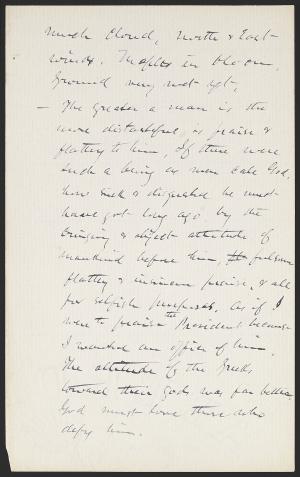 much cloud, north & East
winds. Maples in bloom,
Ground very wet yet.
— The greater a man is the
more distasteful is praise &
flattery to him, If there were
such a being as men take God,
how sick & disgusted he must
have got long ago, by the
cringing & abject attitude of
mankind before him, fulsome
flattery & insincere praise, & all
for selfish purposes. As if I
were to praise the President because
I wanted an office of him.
The attitude of the Greeks
toward their gods was far better.
God must love those who
defy him.